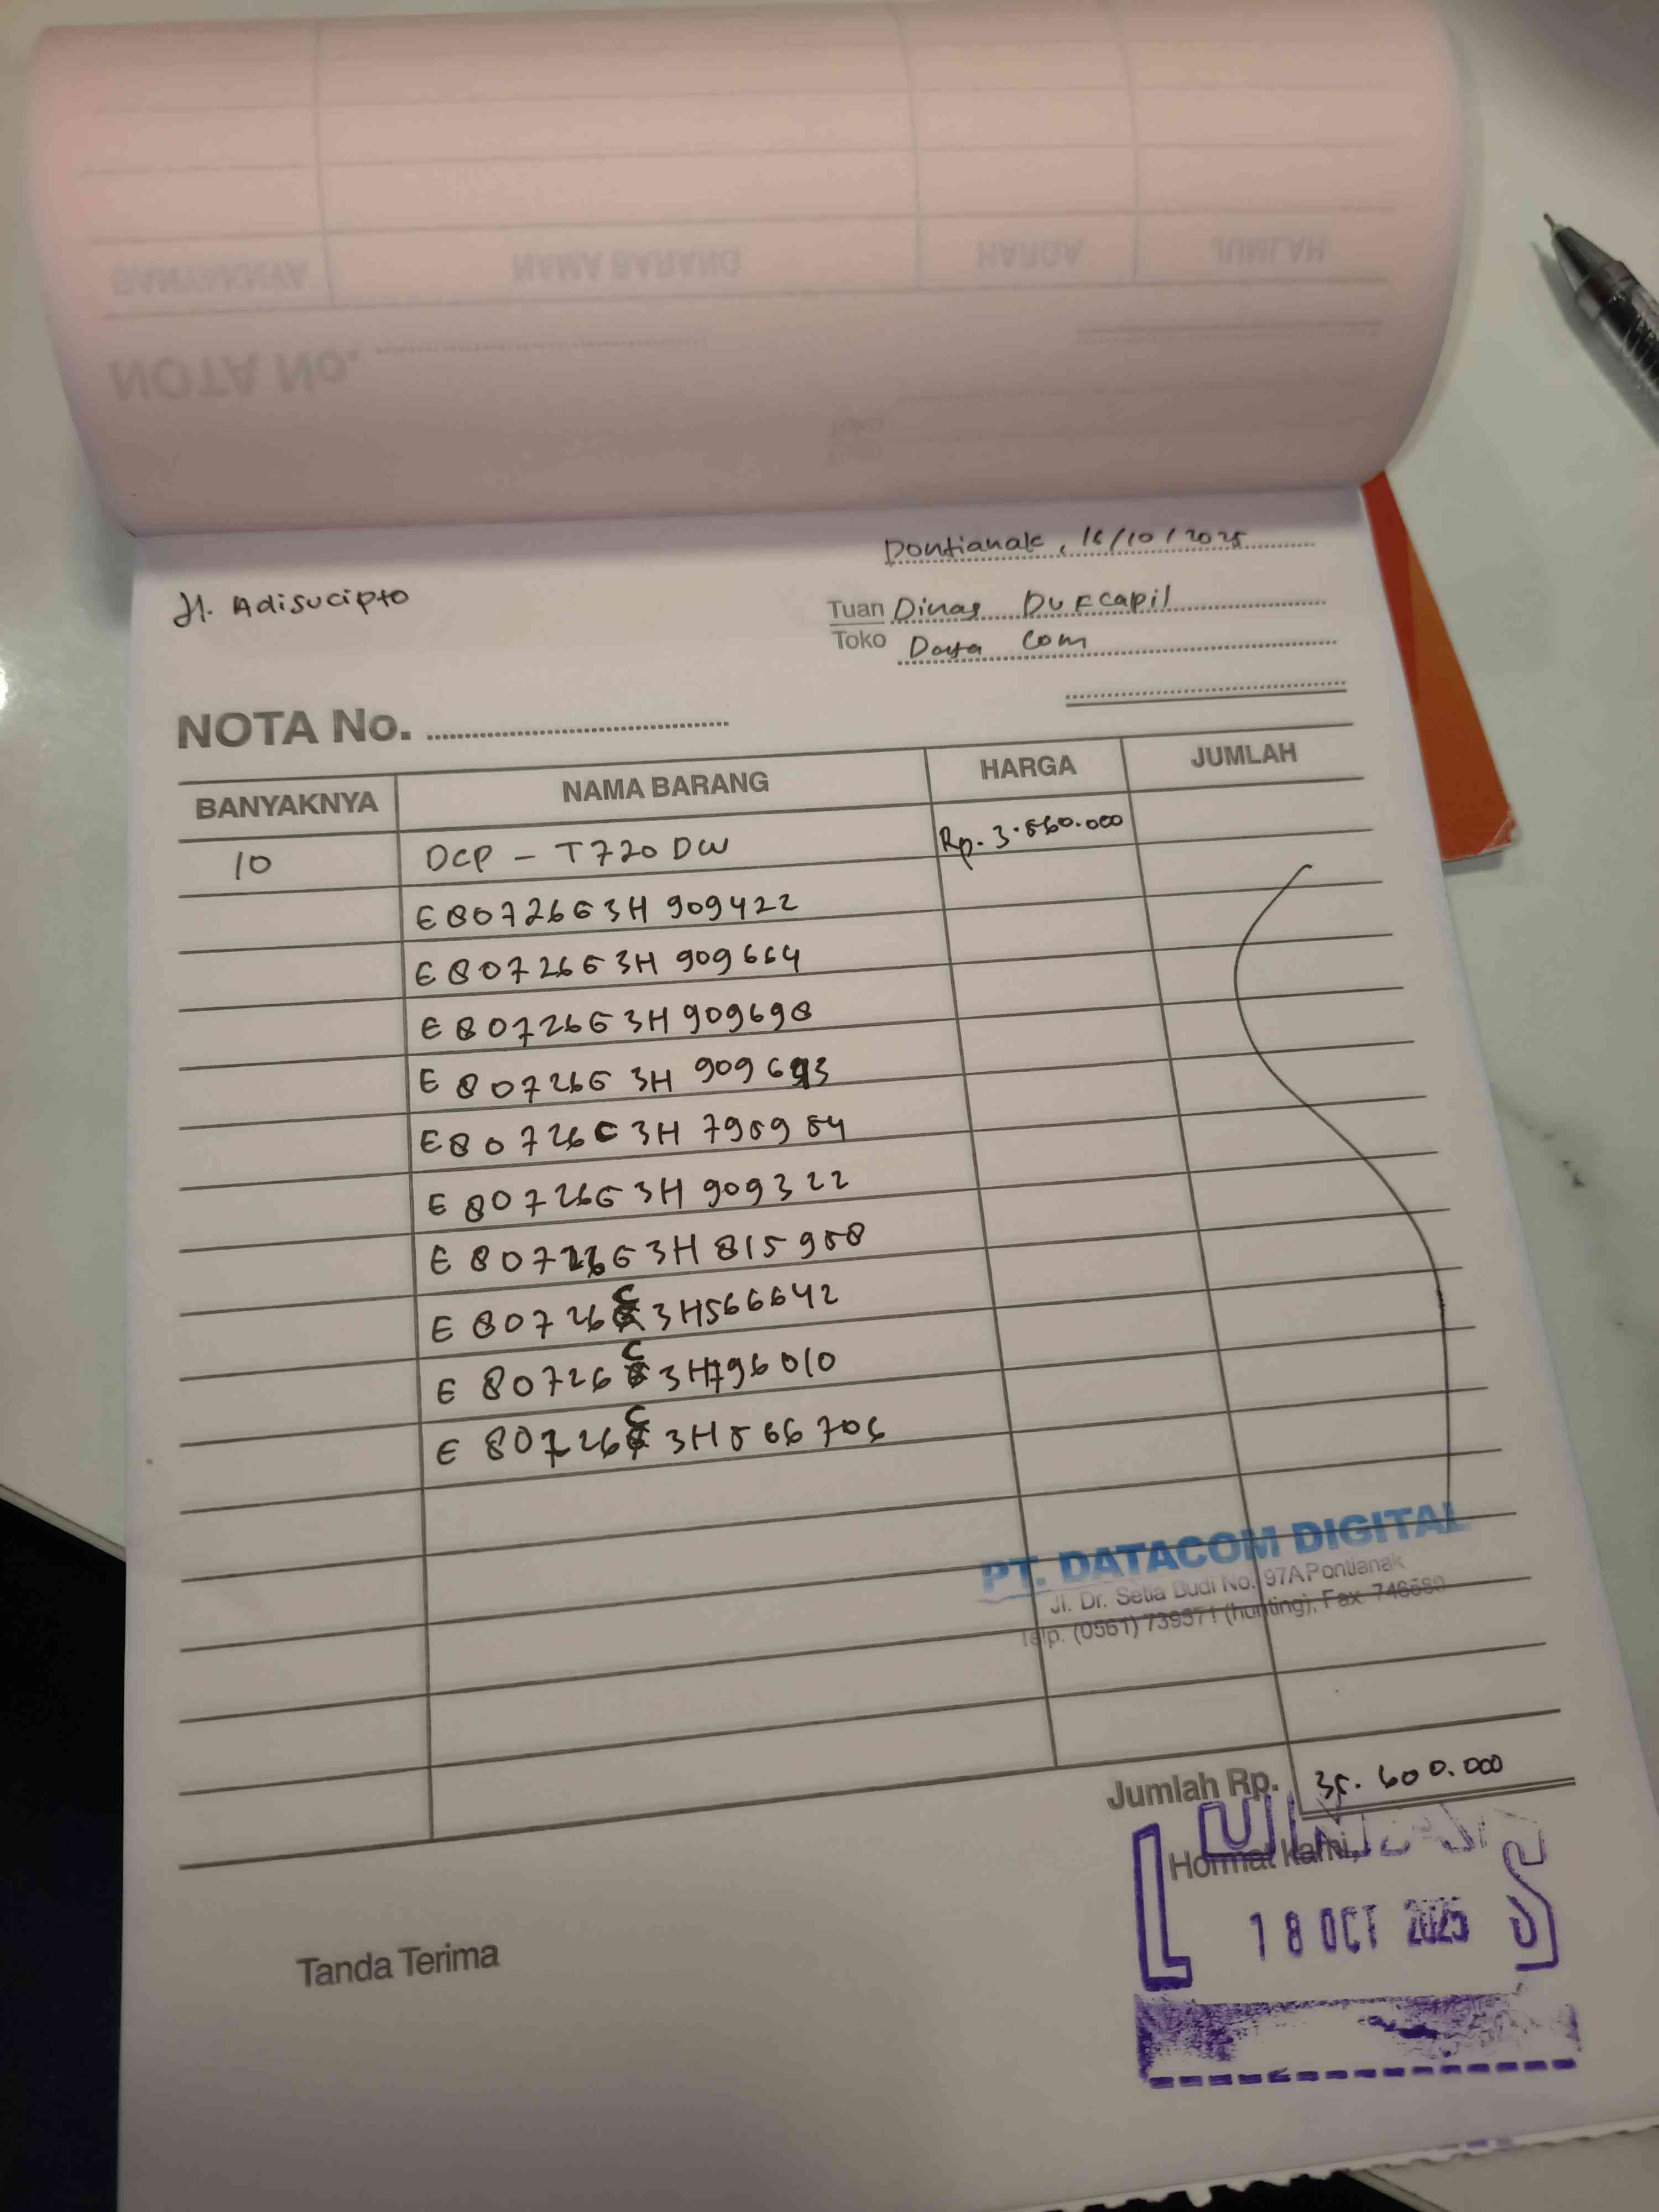 Pontianak, 16/10/2025
Jl. Adisucipto
Tuan Dinas Dukcapil
Toko Daya Com
NOTA No.
BANYAKNYA NAMA BARANG HARGA JUMLAH
10 DCP - T720 DW Rp. 3.560.000
E80726G3H 909422
E80726G3H 909664
E80726G3H 909698
E80726G3H 909693
E80726C3H 795954
E80726G3H 909322
E80726G3H 815958
E80726C3H566642
E80726C3H796010
E80726C3H566706
PT. DATACOM DIGITAL
Jl. Dr. Setia Budi No. 97A Pontianak
Telp. (0561) 739571 (hunting), Fax. 746580
Jumlah Rp. 35.600.000
Hormat kami,
LUNAS
18 OCT 2025
Tanda Terima